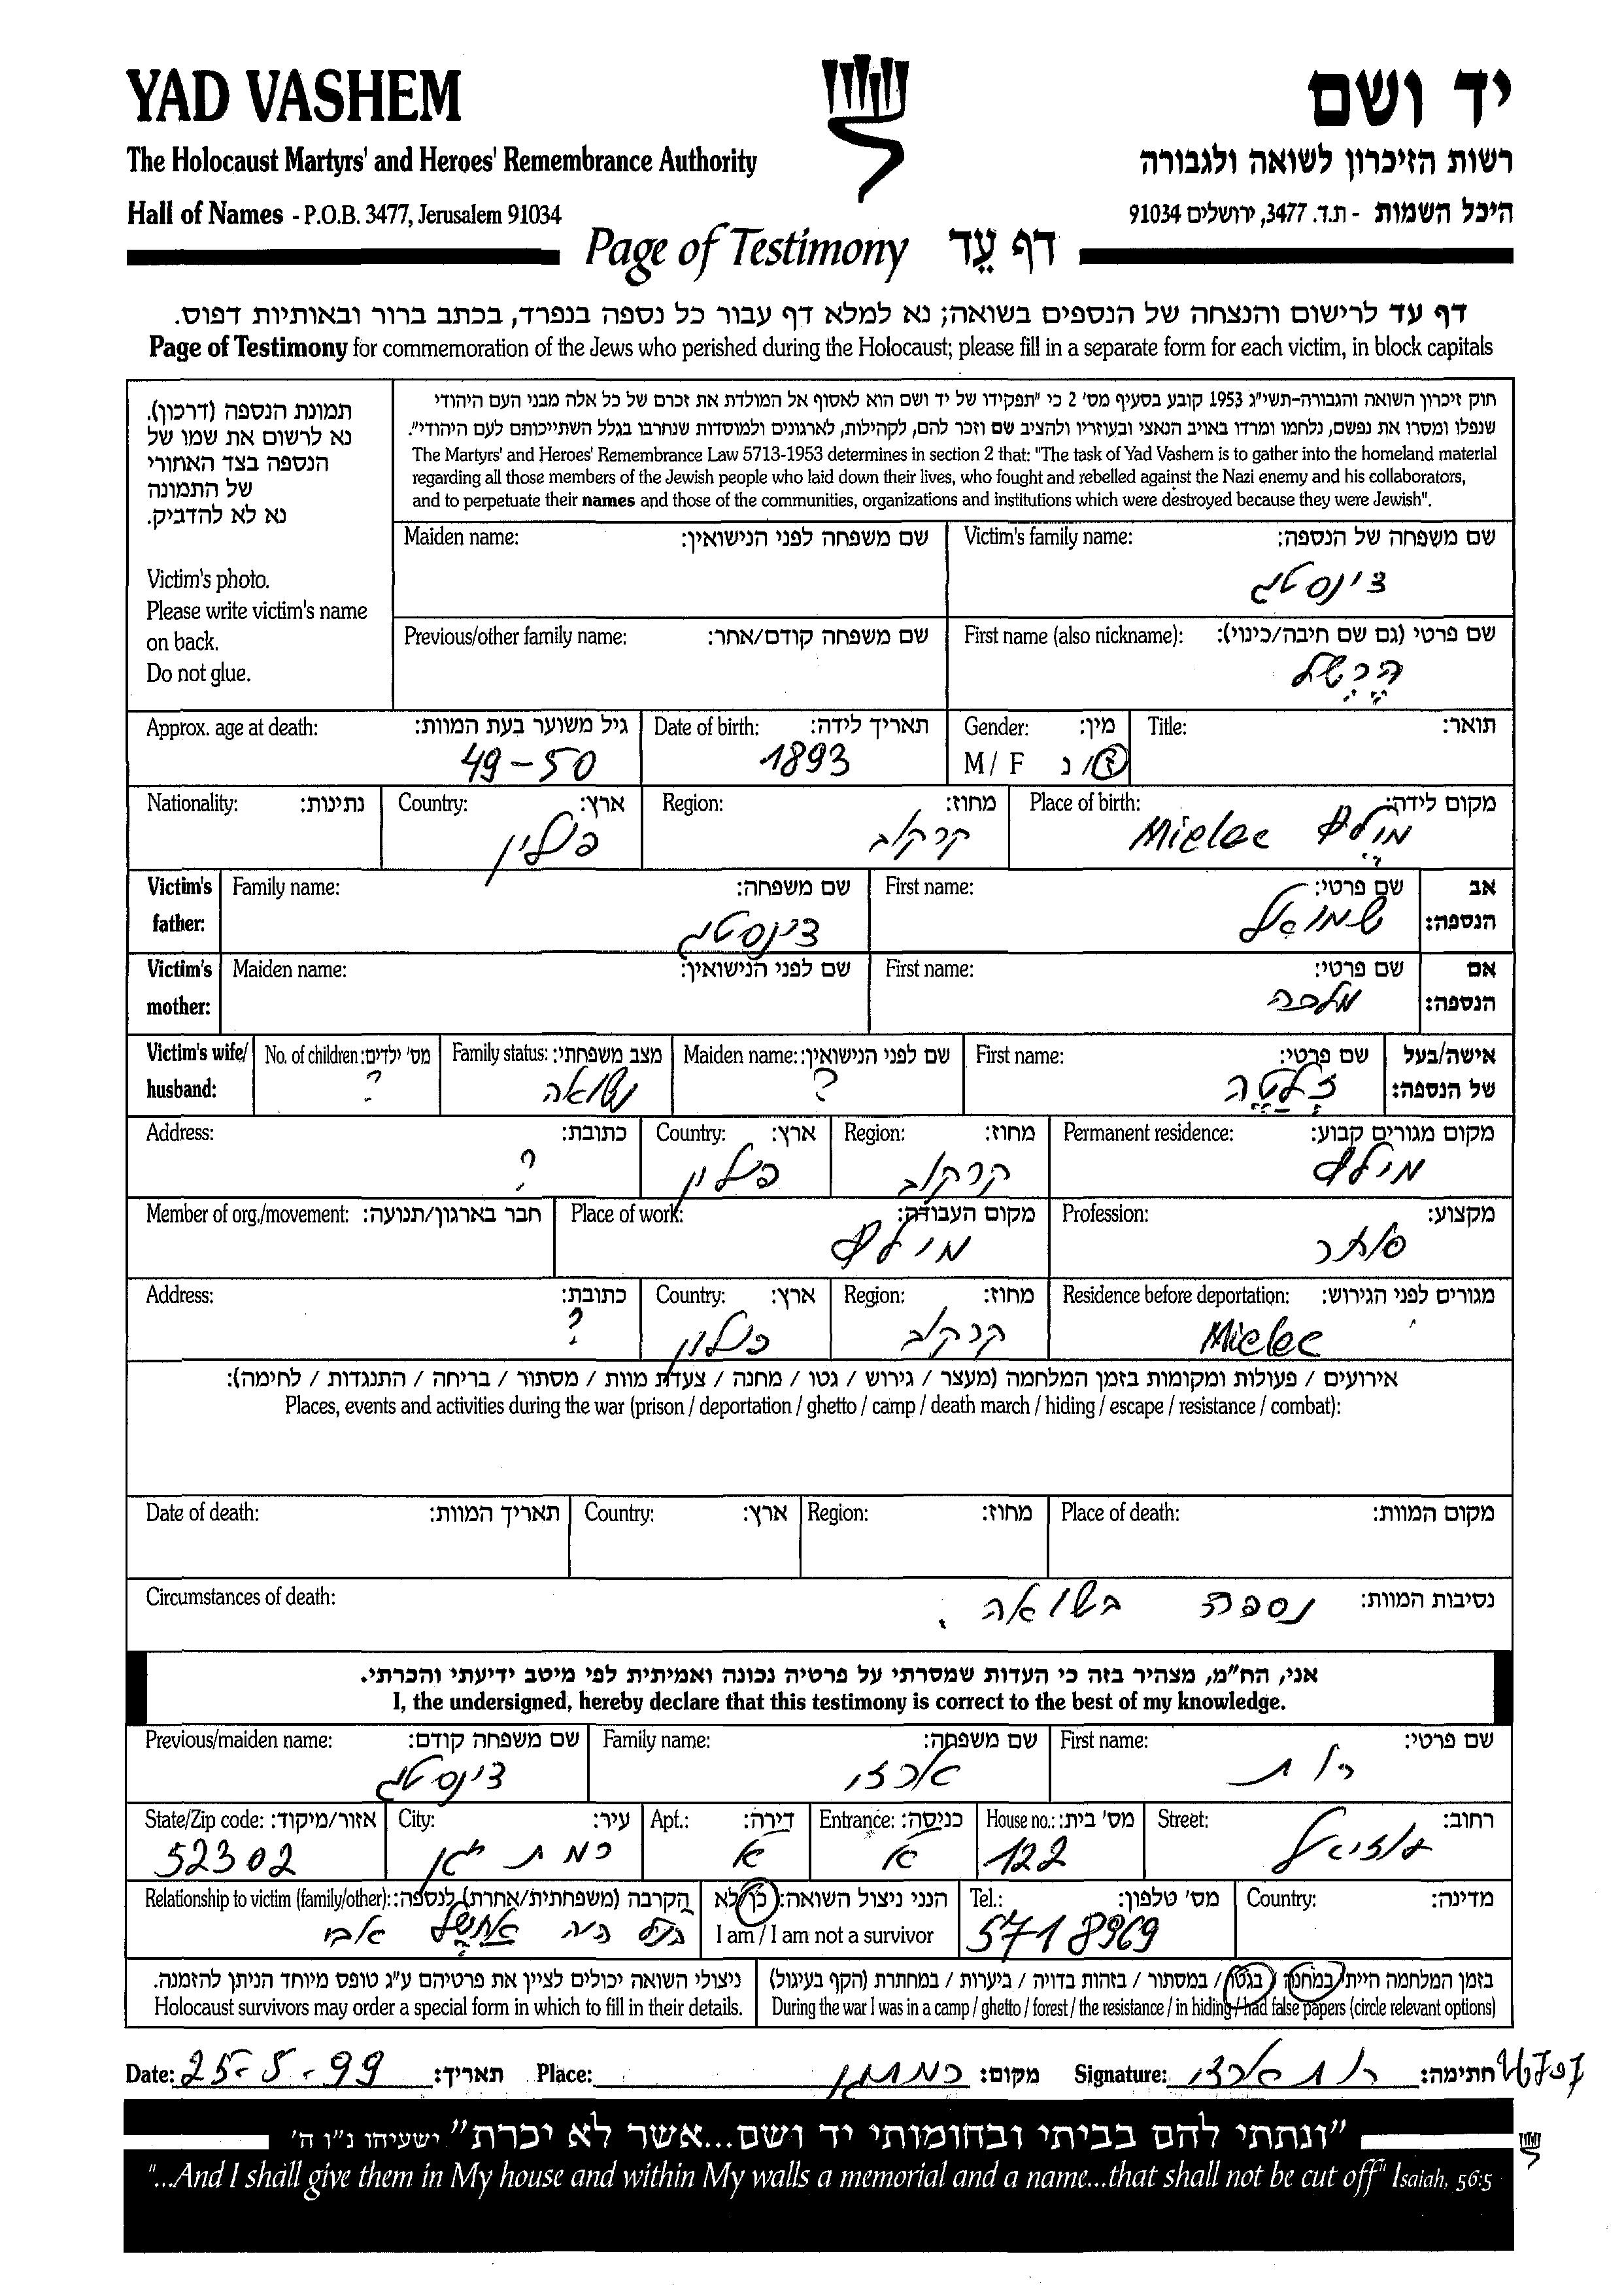 YAD VASHEM
יד ושם
The Holocaust Martyrs' and Heroes' Remembrance Authority
רשות הזיכרון לשואה ולגבורה
Hall of Names - P.O.B. 3477, Jerusalem 91034
היכל השמות - ת.ד. 3477, ירושלים 91034
Page of Testimony דף עֵד
דף עד לרישום והנצחה של הנספים בשואה; נא למלא דף עבור כל נספה בנפרד, בכתב ברור ובאותיות דפוס.
Page of Testimony for commemoration of the Jews who perished during the Holocaust; please fill in a separate form for each victim, in block capitals
תמונת הנספה (דרכון).
נא לרשום את שמו של
הנספה בצד האחורי
של התמונה
נא לא להדביק.
Victim's photo.
Please write victim's name
on back.
Do not glue.
חוק זיכרון השואה והגבורה-תשי"ג 1953 קובע בסעיף מס' 2 כי "תפקידו של יד ושם הוא לאסוף אל המולדת את זכרם של כל אלה מבני העם היהודי
שנפלו ומסרו את נפשם, נלחמו ומרדו באויב הנאצי ובעוזריו ולהציב שם וזכר להם, לקהילות, לארגונים ולמוסדות שנחרבו בגלל השתייכותם לעם היהודי".
The Martyrs' and Heroes' Remembrance Law 5713-1953 determines in section 2 that: "The task of Yad Vashem is to gather into the homeland material
regarding all those members of the Jewish people who laid down their lives, who fought and rebelled against the Nazi enemy and his collaborators,
and to perpetuate their names and those of the communities, organizations and institutions which were destroyed because they were Jewish".
Victim's family name: שם משפחה של הנספה:
צ'ינסטג
Maiden name: שם משפחה לפני הנישואין:
First name (also nickname): שם פרטי (גם שם חיבה/כינוי):
הרשל
Previous/other family name: שם משפחה קודם/אחר:
Title: תואר:
Gender: מין:
M / F ז/נ
Date of birth: תאריך לידה:
1893
Approx. age at death: גיל משוער בעת המוות:
49-50
Place of birth: מקום לידה:
מילץ Mielec
Region: מחוז:
קרקוב
Country: ארץ:
פולין
Nationality: נתינות:
Victim's father: אב הנספה:
First name: שם פרטי:
שמואל
Family name: שם משפחה:
צ'ינסטג
Victim's mother: אם הנספה:
First name: שם פרטי:
מלכה
Maiden name: שם לפני הנישואין:
Victim's wife/ husband: אישה/בעל של הנספה:
First name: שם פרטי:
זלטה
Maiden name: שם לפני הנישואין:
?
Family status: מצב משפחתי:
נשואה
No. of children: מס' ילדים:
?
Permanent residence: מקום מגורים קבוע:
מילץ
Region: מחוז:
קרקוב
Country: ארץ:
פולין
Address: כתובת:
?
Profession: מקצוע:
סוחר
Place of work: מקום העבודה:
מילץ
Member of org./movement: חבר בארגון/תנועה:
Residence before deportation: מגורים לפני הגירוש:
Mielec
Region: מחוז:
קרקוב
Country: ארץ:
פולין
Address: כתובת:
?
אירועים / פעולות ומקומות בזמן המלחמה (מעצר / גירוש / גטו / מחנה / צעדת מוות / מסתור / בריחה / התנגדות / לחימה):
Places, events and activities during the war (prison / deportation / ghetto / camp / death march / hiding / escape / resistance / combat):
Place of death: מקום המוות:
Region: מחוז:
Country: ארץ:
Date of death: תאריך המוות:
Circumstances of death: נסיבות המוות:
נספה בשואה.
אני, הח"מ, מצהיר בזה כי העדות שמסרתי על פרטיה נכונה ואמיתית לפי מיטב ידיעתי והכרתי.
I, the undersigned, hereby declare that this testimony is correct to the best of my knowledge.
First name: שם פרטי:
רות
Family name: שם משפחה:
ארזי
Previous/maiden name: שם משפחה קודם:
צ'ינסטג
Street: רחוב:
עוזיאל
House no.: מס' בית:
122
Entrance: כניסה:
א
Apt.: דירה:
א
City: עיר:
רמת גן
State/Zip code: אזור/מיקוד:
52302
Country: מדינה:
Tel.: מס' טלפון:
5718969
הנני ניצול השואה: כן/לא
I am / I am not a survivor
Relationship to victim (family/other): הקרבה (משפחתית/אחרת) לנספה:
היה אבי
בזמן המלחמה הייתי במחנה / בגטו / במסתור / בזהות בדויה / ביערות / במחתרת (הקף בעיגול)
During the war I was in a camp / ghetto / forest / the resistance / in hiding / had false papers (circle relevant options)
ניצולי השואה יכולים לציין את פרטיהם ע"ג טופס מיוחד הניתן להזמנה.
Holocaust survivors may order a special form in which to fill in their details.
Date: 25-5-99 תאריך: Place: רמת גן מקום: Signature: רות ארזי חתימה:
"ונתתי להם בביתי ובחומותי יד ושם...אשר לא יכרת" ישעיהו נ"ו ה'
"...And I shall give them in My house and within My walls a memorial and a name...that shall not be cut off" Isaiah, 56:5